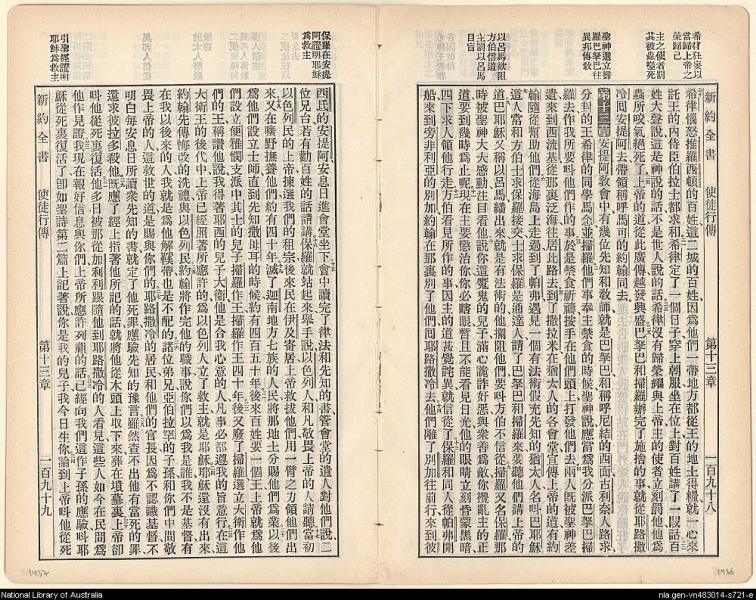 希律狂妄以
當歸上帝之
榮歸己
主之使者罰
其被蟲咬死
聖神選立掃
羅巴拏巴往
異邦傳教
以呂馬欲阻
方伯信道
主罰以呂馬
目盲
新約全書 使徒行傳 第十三章 一百九十八
希律惱怒推羅西頓的百姓這二城的百姓因爲他們一帶地方都從王的地土得糧就一心來
託王的內侍臣伯拉士都求和希律定了一個日子穿上朝服坐在位上對百姓講了一叚話百
姓大聲說這是神說的話不是世人說的話希律沒有歸榮耀與上帝主的使者立刻罰他爲
蟲所咬氣絕死了上帝的道從此廣傳越發興盛巴拏巴和掃羅辦完了施捨的事就從耶路撒
冷回安提阿去帶領稱呼馬可的約翰同去
第十三章安提阿敎會中有幾位先知和敎師就是巴拏巴和稱呼尼結的西面古利奈人路求
分封的王希律的同學馬念並掃羅他們事奉主禁食的時候聖神說應當爲我分派巴拏巴掃
羅去作我所要叫他們作的事於是禁食祈禱按手在他們頭上打發他們去兩人旣被聖神差
遣來到西流基從那裏泛海往居比路去到了撒拉米在猶太人的各會堂宣傳上帝的道有約
翰隨從幫助他們從海島上走過到了帕弗遇見一個有法術假充先知的猶太人名叫巴耶穌
這人常和方伯士求保羅在一處士求保羅是通達人請了巴拏巴和掃羅來要聽他們講上帝的
道巴耶穌又稱以呂馬繙出來就是有法術的他攔阻他們要叫方伯不信從掃羅又名保羅那
時被聖神大大感動注目看他說你這魔鬼的兒子滿心詭詐好惡與衆善爲敵你擾亂主的正
道要到幾時爲止呢現在主要懲治你你必瞎眼暫且不能看見日光他的眼睛立刻昏蒙黑暗
四下求人領他行走方伯看見所作的事因主的道甚覺詫異就信從了保羅和同人從帕弗開
船來到旁非利亞的別加約翰在那裏別了他們回耶路撒冷去他們離了別加往前行來到彼
保羅在安提
阿證明耶穌
爲救主
引聖經證明
耶穌爲救主
西氏的安提阿安息日進會堂坐下會中讀完了律法和先知的書管會堂的遣人對他們說二
位兄台若有勸百姓的話請講保羅就站起來舉手說以色列人和凡敬畏上帝的人請聽當初
以色列民的上帝揀選我們的祖宗後來民在伊及寄居上帝救拔他們用大能之力領他們出
來又在曠野撫養他們約有四十年滅了迦南地方七族的人民將那地土分賜他們爲業以後
爲他們設立士師直到先知撒母耳的時候約有四百五十年後來百姓要一個王上帝就爲他
們設立便雅憫支派中基士的兒子掃羅作王掃羅作王四十年後又廢了掃羅選立大衛作他
們的王稱讚他說我得著耶西的兒子大衛他是合我心意的人凡事必都遵我的旨意行在這
大衛王的後代中上帝已經照著所應許的爲以色列人立了救主就是耶穌耶穌還沒有出來
約翰先傳悔改的洗禮與以色列民約翰將作完他的職事說你們以爲我是誰我不是基督有
在我以後來的人我就是爲他解鞋帶也是不配的諸位弟兄亞伯拉罕的子孫和你們中間敬
畏上帝的人這救世的道是賜與你們的耶路撒冷的居民和他們的官長因爲不認識基督不
明白每安息日所讀衆先知的書就定了他死罪應驗先知的豫言雖然查不出他有當死的罪
還求彼拉多殺他旣應了經上指著他所記的話就將他從木頭上取下來葬在墳墓裏上帝卻
叫他從死裏復活了他多日被那從加利利跟隨他到耶路撒冷的人看見這些人如今在民間爲
他作見證我現在報好信息與你們上帝所應許列祖的話已經向我們這作子孫的應驗叫耶
穌從死裏復活了卽如聖詩第二篇上記著說你是我的兒子我今日生你論到上帝叫他從死
新約全書 使徒行傳 第十三章 一百九十九
1437
1436
National Library of Australia
nla.gen-vn483014-s721-e